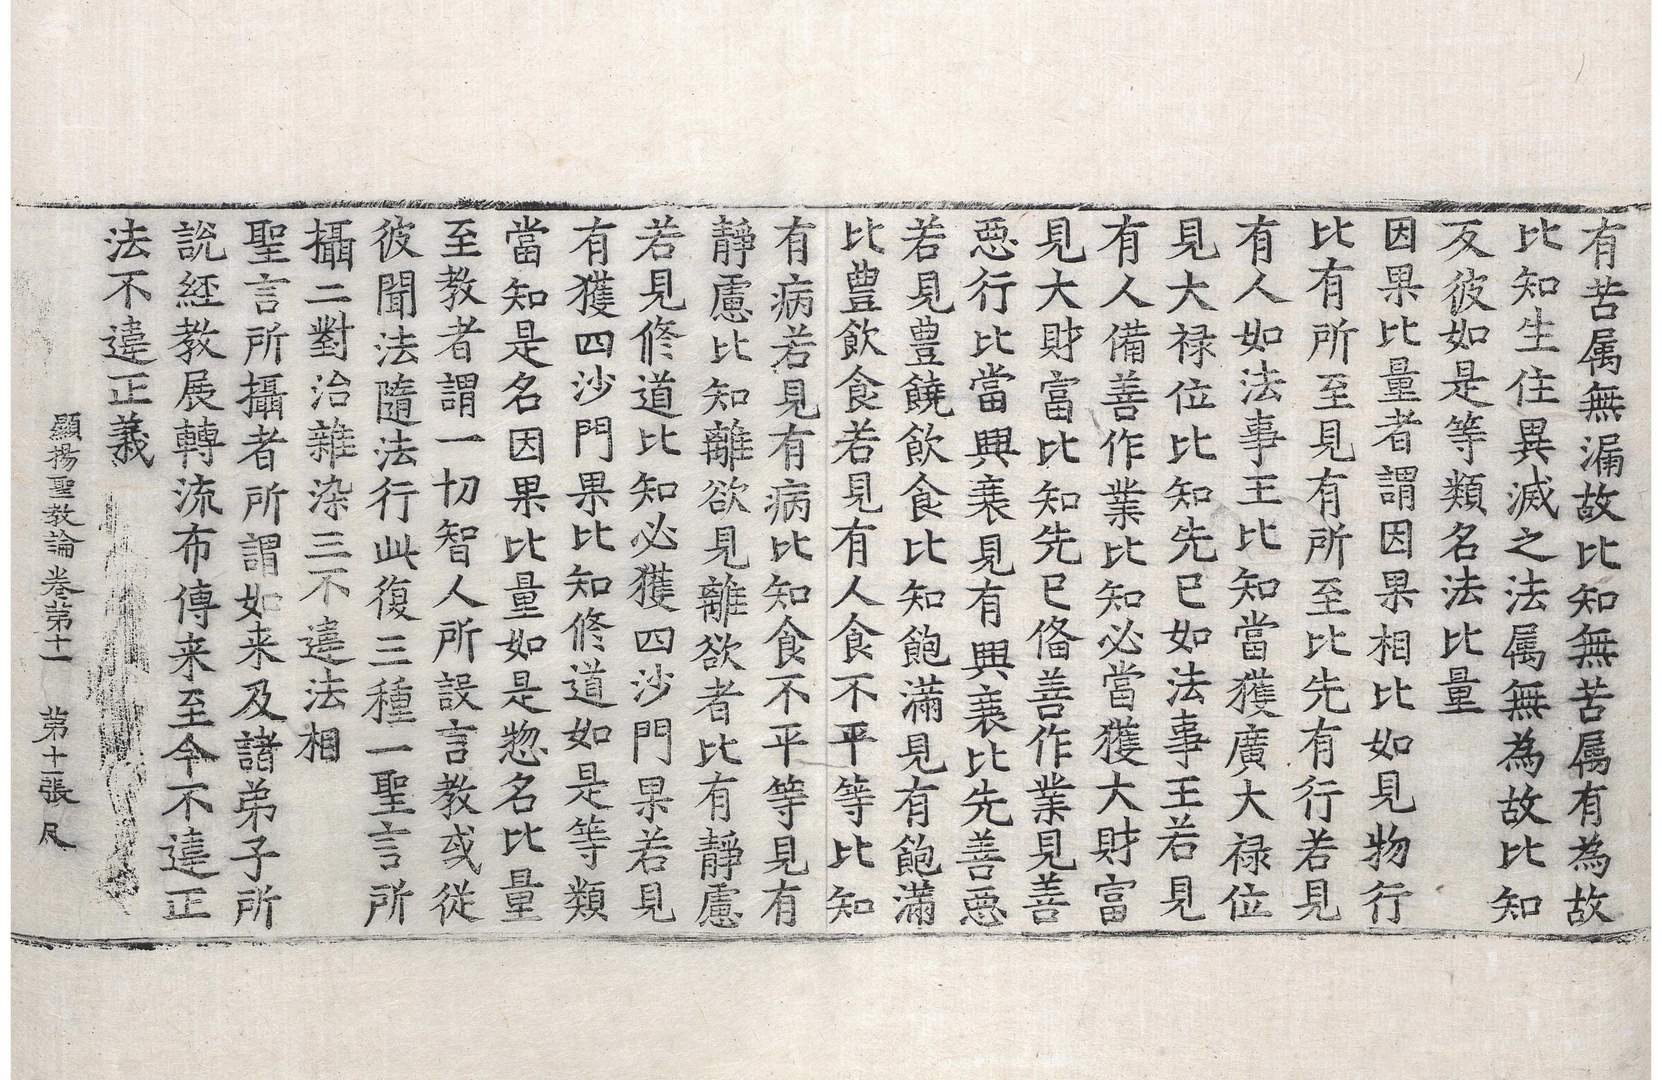 有苦属無漏故比知無苦属有為故
比知生住異滅之法属無為故比知
反彼如是等類名法比量
因果比量者謂因果相比如見物行
比有所至見有所至比先有行若見
有人如法事王比知當獲廣大祿位
見大祿位比知先已如法事王若見
有人備善作業比知必當獲大財富
見大財富比知先已俻善作業見善
惡行比當興衰見有興衰比先善惡
若見豊饒飲食比知飽滿見有飽滿
比豊飲食若見有人食不平等比知
有病若見有病比知食不平等見有
靜慮比知離欲見離欲者比有靜慮
若見修道比知必獲四沙門果若見
有獲四沙門果比知修道如是等類
當知是名因果比量如是惣名比量
至教者謂一切智人所說言教或從
彼聞法隨法行此復三種一聖言所
攝二對治雜染三不違法相
聖言所攝者所謂如来及諸弟子所
說経教展轉流布傳来至今不違正
法不違正義
顯揚聖教論卷第十一 第十一張 尽